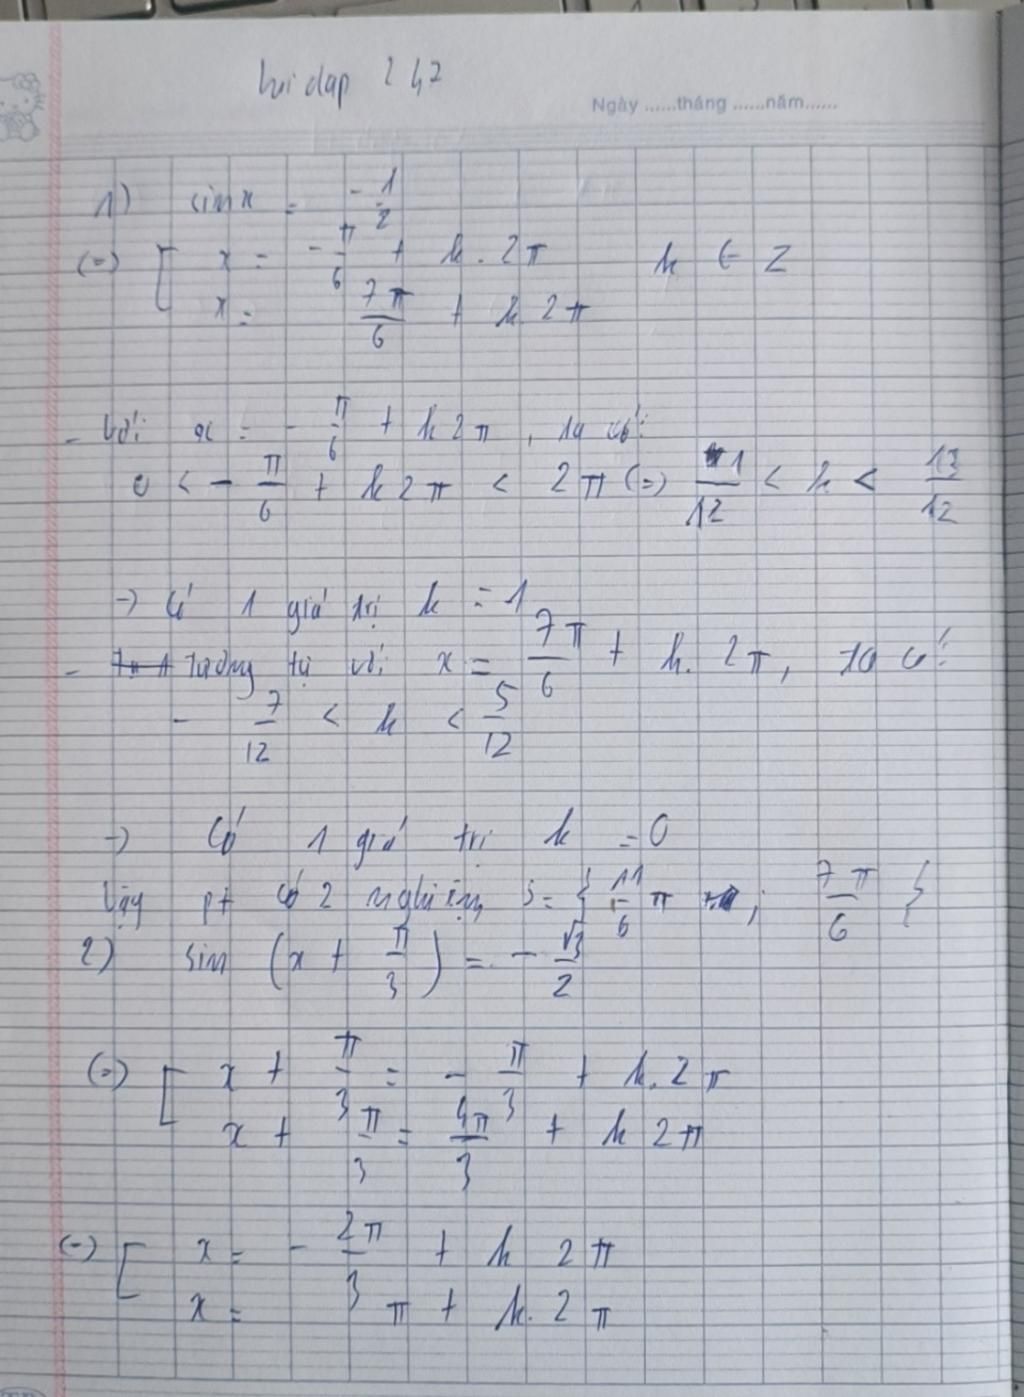 hoidap 247
Ngày ......tháng ......năm......
1) sin x = - 1/2
(=) [ x = - π/6 + k. 2π k ∈ Z
x = 7π/6 + k 2π
- Với x = - π/6 + k 2π , ta có:
0 < - π/6 + k 2π < 2π (=) 1/12 < k < 13/12
-> Có 1 giá trị k = 1
- Tương tự với x = 7π/6 + k. 2π, ta có:
- 7/12 < k < 5/12
-> Có 1 giá trị k = 0
Vậy pt có 2 nghiệm S = { 11/6 π ; 7π/6 }
2) sin (x + π/3) = - √3/2
(=) [ x + π/3 = - π/3 + k. 2π
x + π/3 = 4π/3 + k 2π
(=) [ x = - 2π/3 + k 2π
x = π + k. 2π